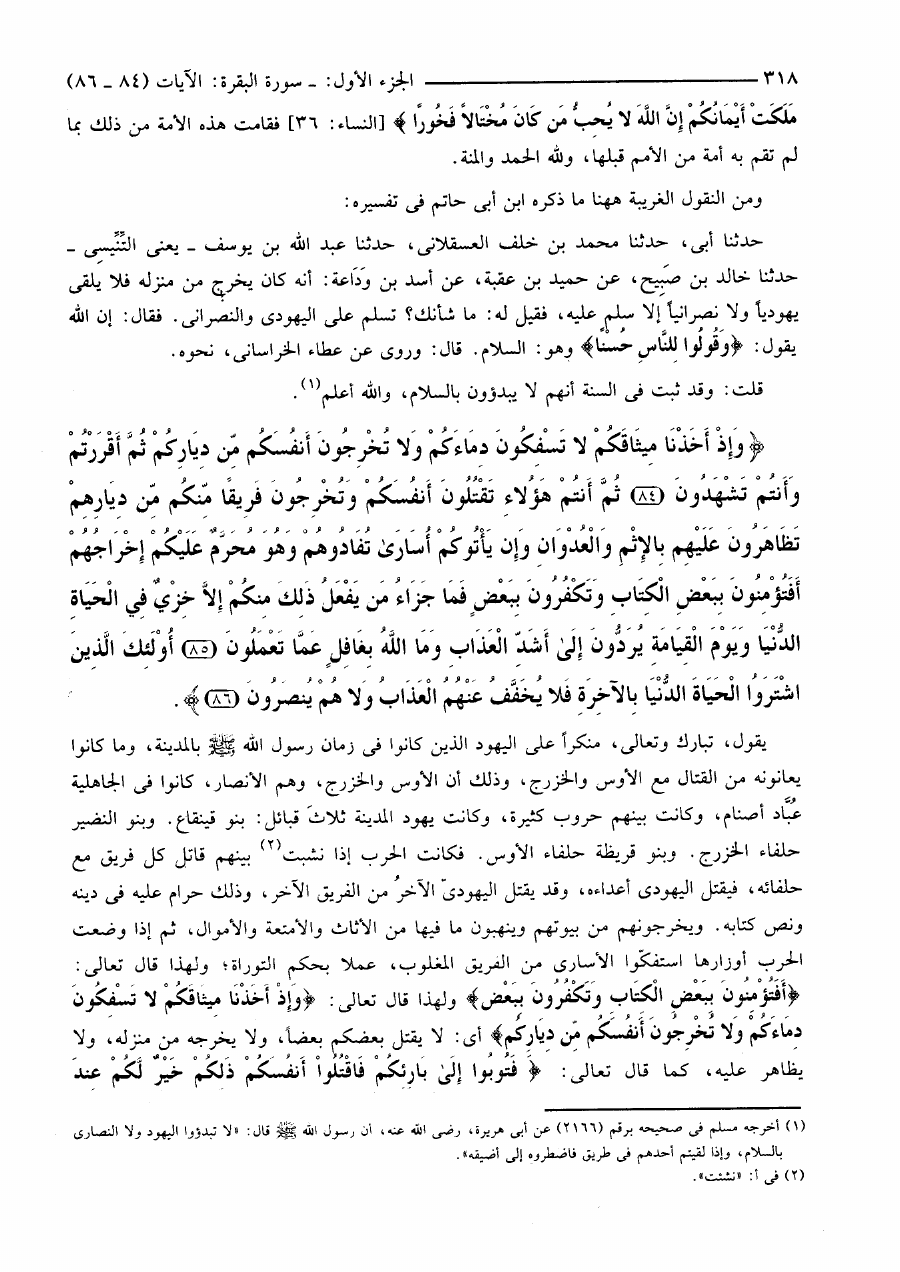 ٣١٨ ــــــــــ الجزء الأول: ـ سورة البقرة: الآيات (٨٤ ـ ٨٦)
مَلَكَتْ أَيْمَانُكُمْ إِنَّ اللَّهَ لا يُحِبُّ مَن كَانَ مُخْتَالاً فَخُوراً ﴾ [النساء: ٣٦] فقامت هذه الأمة من ذلك بما
لم تقم به أمة من الأمم قبلها، ولله الحمد والمنة.
ومن النقول الغريبة ههنا ما ذكره ابن أبى حاتم فى تفسيره:
حدثنا أبى، حدثنا محمد بن خلف العسقلانى، حدثنا عبد الله بن يوسف ـ يعنى التِّنِّيسِى ـ
حدثنا خالد بن صَبِيح، عن حميد بن عقبة، عن أسد بن وَدَاعة: أنه كان يخرج من منزله فلا يلقى
يهودياً ولا نصرانياً إلا سلم عليه، فقيل له: ما شأنك؟ تسلم على اليهودى والنصرانى. فقال: إن الله
يقول: ﴿وَقُولُوا لِلنَّاسِ حُسْنًا﴾ وهو: السلام. قال: وروى عن عطاء الخراسانى، نحوه.
قلت: وقد ثبت فى السنة أنهم لا يبدؤون بالسلام، والله أعلم(١).
﴿ وَإِذْ أَخَذْنَا مِيثَاقَكُمْ لا تَسْفِكُونَ دِمَاءَكُمْ وَلا تُخْرِجُونَ أَنفُسَكُم مِّن دِيَارِكُمْ ثُمَّ أَقْرَرْتُمْ
وَأَنتُمْ تَشْهَدُونَ (٨٤) ثُمَّ أَنتُمْ هَؤُلاءِ تَقْتُلُونَ أَنفُسَكُمْ وَتُخْرِجُونَ فَرِيقًا مِّنكُم مِّن دِيَارِهِمْ
تَظَاهَرُونَ عَلَيْهِم بِالإِثْمِ وَالْعُدْوَانِ وَإِن يَأْتُوكُمْ أُسَارَىٰ تُفَادُوهُمْ وَهُوَ مُحَرَّمٌ عَلَيْكُمْ إِخْرَاجُهُمْ
أَفَتُؤْمِنُونَ بِبَعْضِ الْكِتَابِ وَتَكْفُرُونَ بِبَعْضٍ فَمَا جَزَاءُ مَن يَفْعَلُ ذَلِكَ مِنكُمْ إِلاَّ خِزْيٌ فِي الْحَيَاةِ
الدُّنْيَا وَيَوْمَ الْقِيَامَةِ يُرَدُّونَ إِلَىٰ أَشَدِّ الْعَذَابِ وَمَا اللَّهُ بِغَافِلٍ عَمَّا تَعْمَلُونَ (٨٥) أُوْلَئِكَ الَّذِينَ
اشْتَرَوُا الْحَيَاةَ الدُّنْيَا بِالآخِرَةِ فَلا يُخَفَّفُ عَنْهُمُ الْعَذَابُ وَلا هُمْ يُنصَرُونَ (٨٦)﴾.
يقول، تبارك وتعالى، منكراً على اليهود الذين كانوا فى زمان رسول الله ﷺ بالمدينة، وما كانوا
يعانونه من القتال مع الأوس والخزرج، وذلك أن الأوس والخزرج، وهم الأنصار، كانوا فى الجاهلية
عُبَّاد أصنام، وكانت بينهم حروب كثيرة، وكانت يهود المدينة ثلاثَ قبائل: بنو قينقاع. وبنو النضير
حلفاء الخزرج. وبنو قريظة حلفاء الأوس. فكانت الحرب إذا نشبت(٢) بينهم قاتل كل فريق مع
حلفائه، فيقتل اليهودى أعداءه، وقد يقتل اليهودىّ الآخرُ من الفريق الآخر، وذلك حرام عليه فى دينه
ونص كتابه. ويخرجونهم من بيوتهم وينهبون ما فيها من الأثاث والأمتعة والأموال، ثم إذا وضعت
الحرب أوزارها استفكّوا الأسارى من الفريق المغلوب، عملا بحكم التوراة؛ ولهذا قال تعالى:
﴿أَفَتُؤْمِنُونَ بِبَعْضِ الْكِتَابِ وَتَكْفُرُونَ بِبَعْضٍ﴾ ولهذا قال تعالى: ﴿وَإِذْ أَخَذْنَا مِيثَاقَكُمْ لا تَسْفِكُونَ
دِمَاءَكُمْ وَلا تُخْرِجُونَ أَنفُسَكُم مِّن دِيَارِكُمْ﴾ أى: لا يقتل بعضكم بعضاً، ولا يخرجه من منزله، ولا
يظاهر عليه، كما قال تعالى: ﴿ فَتُوبُوا إِلَىٰ بَارِئِكُمْ فَاقْتُلُواْ أَنفُسَكُمْ ذَلِكُمْ خَيْرٌ لَّكُمْ عِندَ
(١) أخرجه مسلم فى صحيحه برقم (٢١٦٦) عن أبى هريرة، رضى الله عنه، أن رسول الله ﷺ قال: «لا تبدؤوا اليهود ولا النصارى
بالسلام، وإذا لقيتم أحدهم فى طريق فاضطروه إلى أضيقه».
(٢) فى أ: «نشئت».